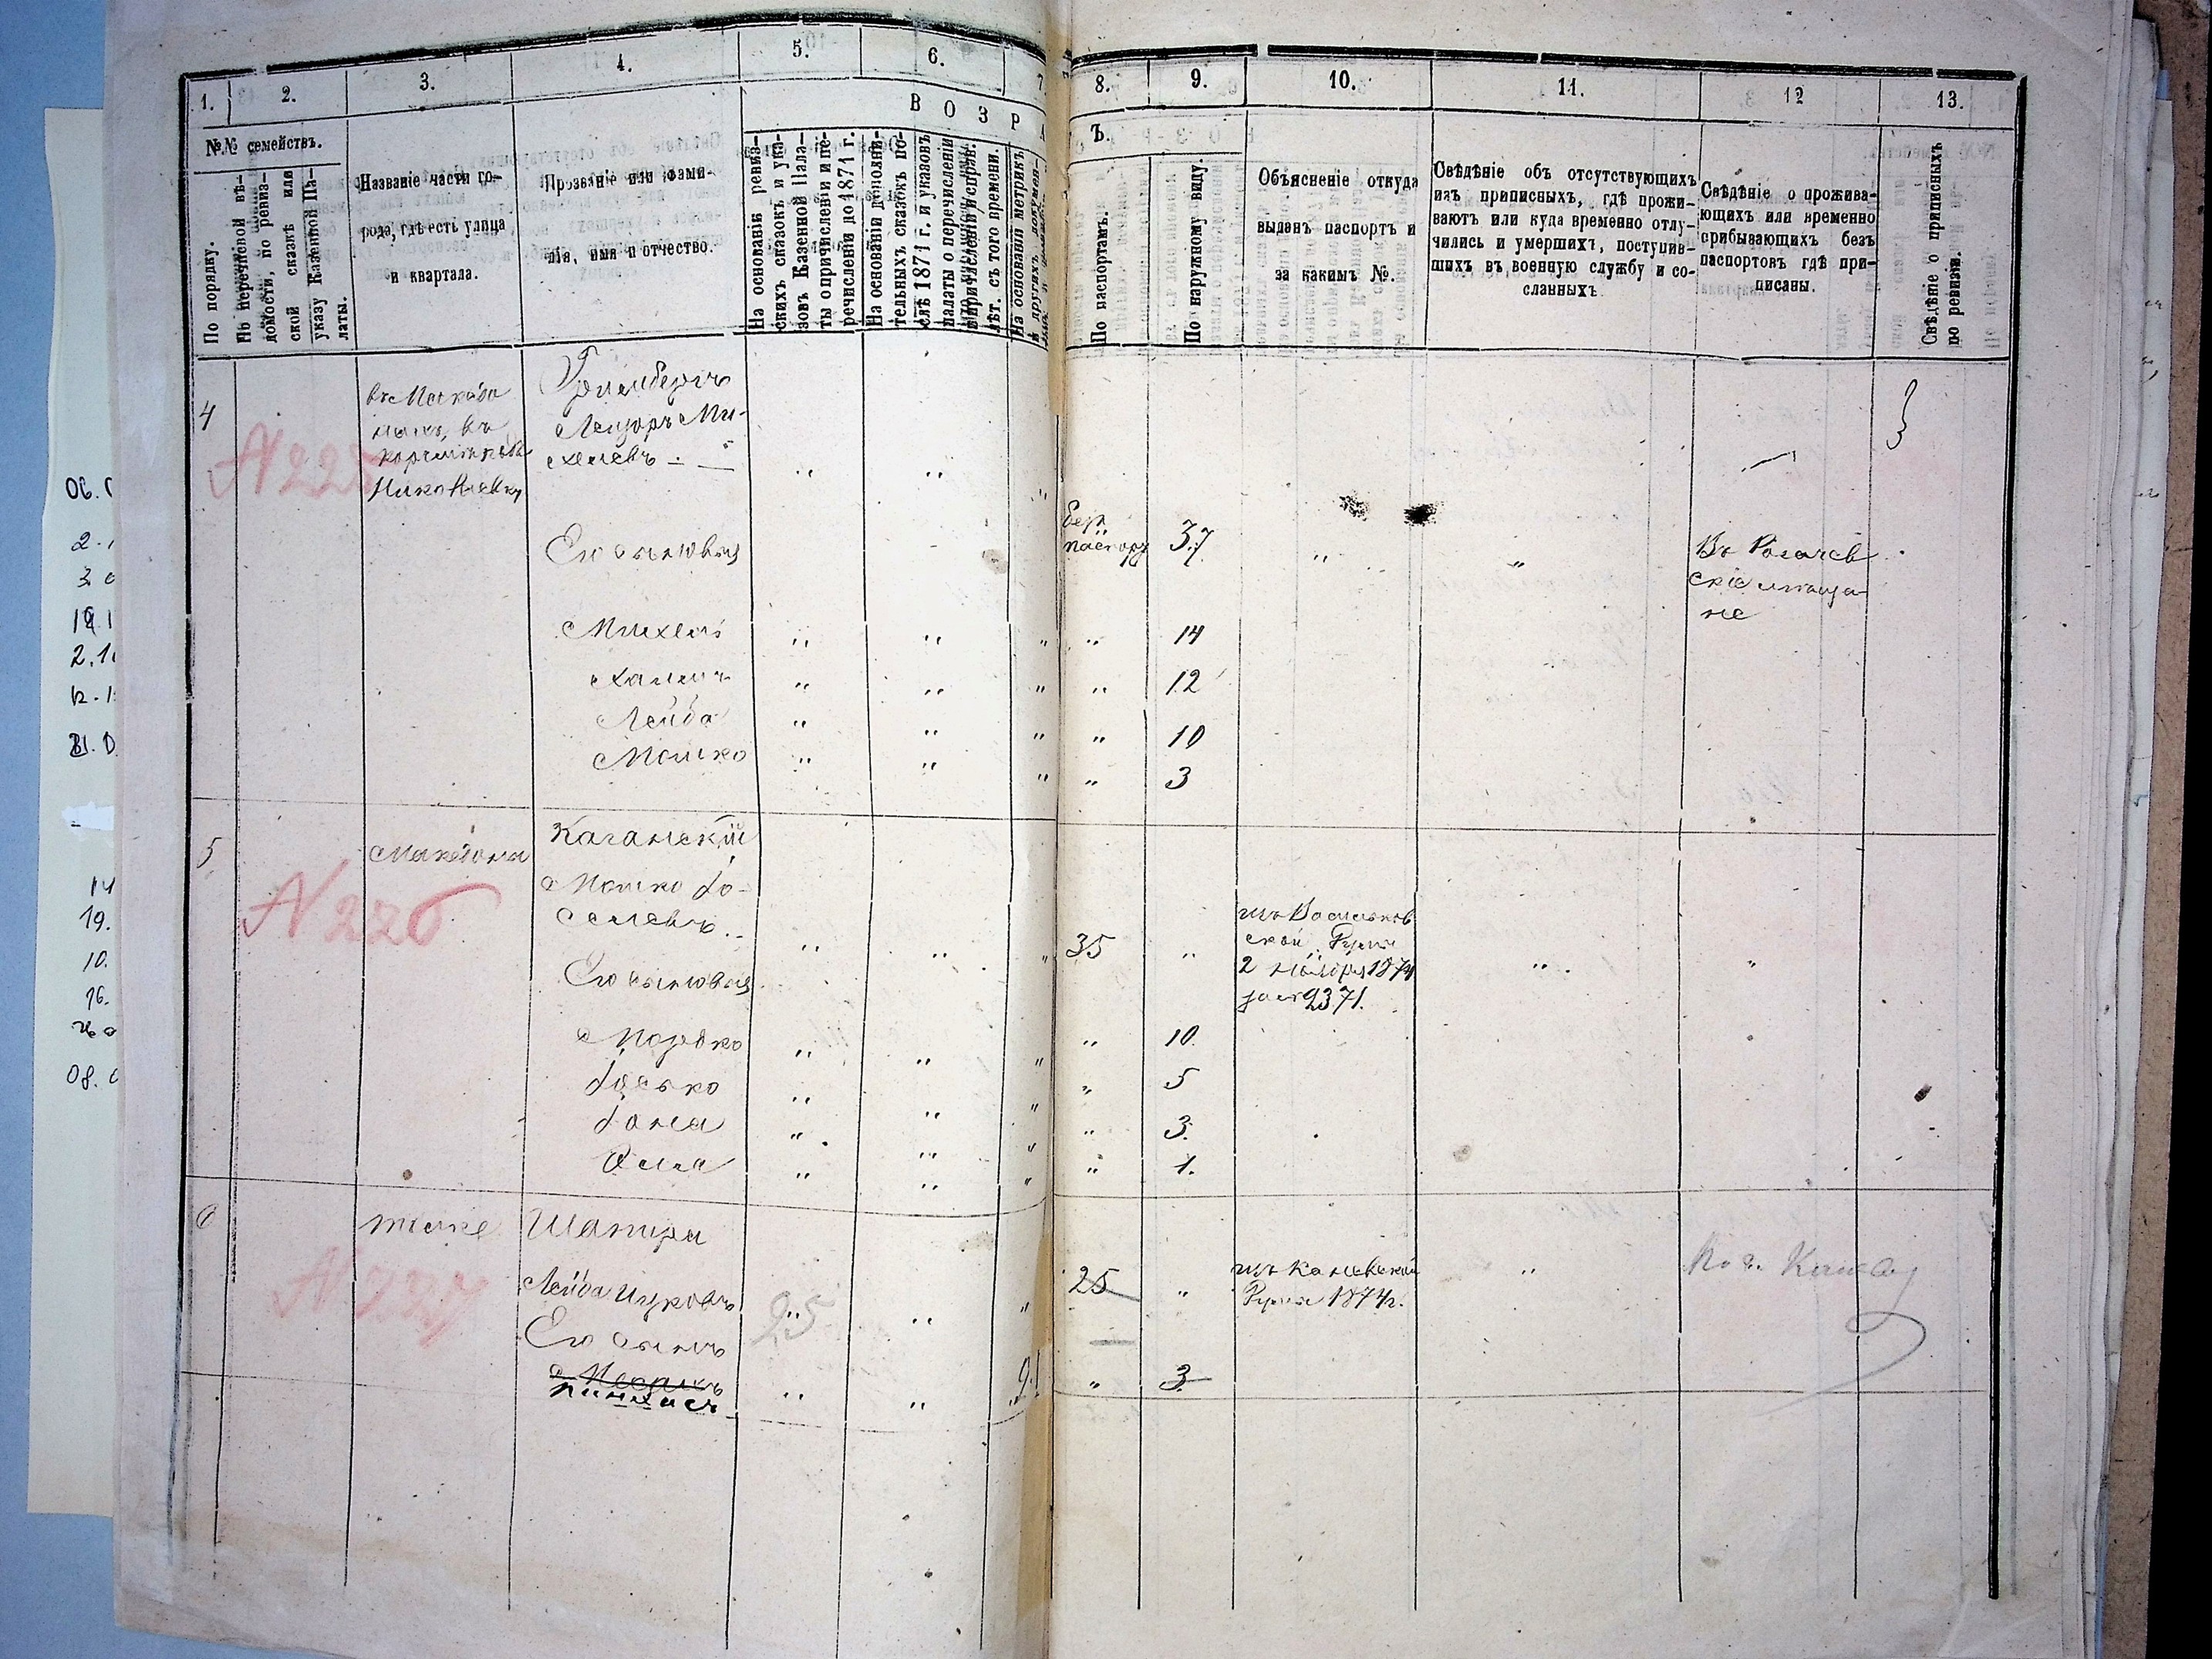 1.
2.
3.
4.
5.
6.
7
8.
9.
10.
11.
12
13.
В О З Р А
Ъ.
№№ семействъ.
По порядку.
По перечневой вѣ-
домости, по ревиз-
ской сказкѣ или
указу Казенной Па-
латы.
Названіе части го-
рода, гдѣ есть улица
и квартала.
Прозваніе или фами-
лія, имя и отчество.
На основаніи ревиз-
скихъ сказокъ и ука-
зовъ Казенной Пала-
ты о причисленіи и пе-
речисленіи до 1871 г.
На основаніи дополни-
тельныхъ сказокъ по-
слѣ 1871 г. и указовъ
палаты о перечисленіи
и причисленіи и справ.
лѣт. съ того времени.
На основаніи метрикъ
и другихъ докумен-
По паспортамъ.
По наружному виду.
Объясненіе откуда
выданъ паспортъ и
за какимъ №.
Свѣдѣніе объ отсутствующихъ
изъ приписныхъ, гдѣ прожи-
ваютъ или куда временно отлу-
чились и умершихъ, поступив-
шихъ въ военную службу и со-
сланныхъ
Свѣдѣніе о прожива-
ющихъ или временно
прибывающихъ безъ
паспортовъ гдѣ при-
писаны.
Свѣдѣніе о приписныхъ
по ревизіи.
4
N 225
въ Македо
нахъ, въ
Николаевку
Гринбергъ
Лейзоръ Ми-
хелевъ
Его сыновья
Безъ
паспорту
37
Въ Рогачев
скіе мѣща-
не
Михель
14
Хаимъ
12
Лейба
10
Мошко
3
5
N 226
Македоны
Каганскій
Мошко Іо-
селевъ
35
изъ Васильков
ской Думы
2 ноября 1874
за № 2371.
Его сыновья
Мордко
10
Іосько
5
Іона
3.
1.
6
N 227
тоже
Шапира
Лейба Ицковъ
25
25
изъ Каневской
Думы 1874 г.
Его сынъ
Пинхасъ
3